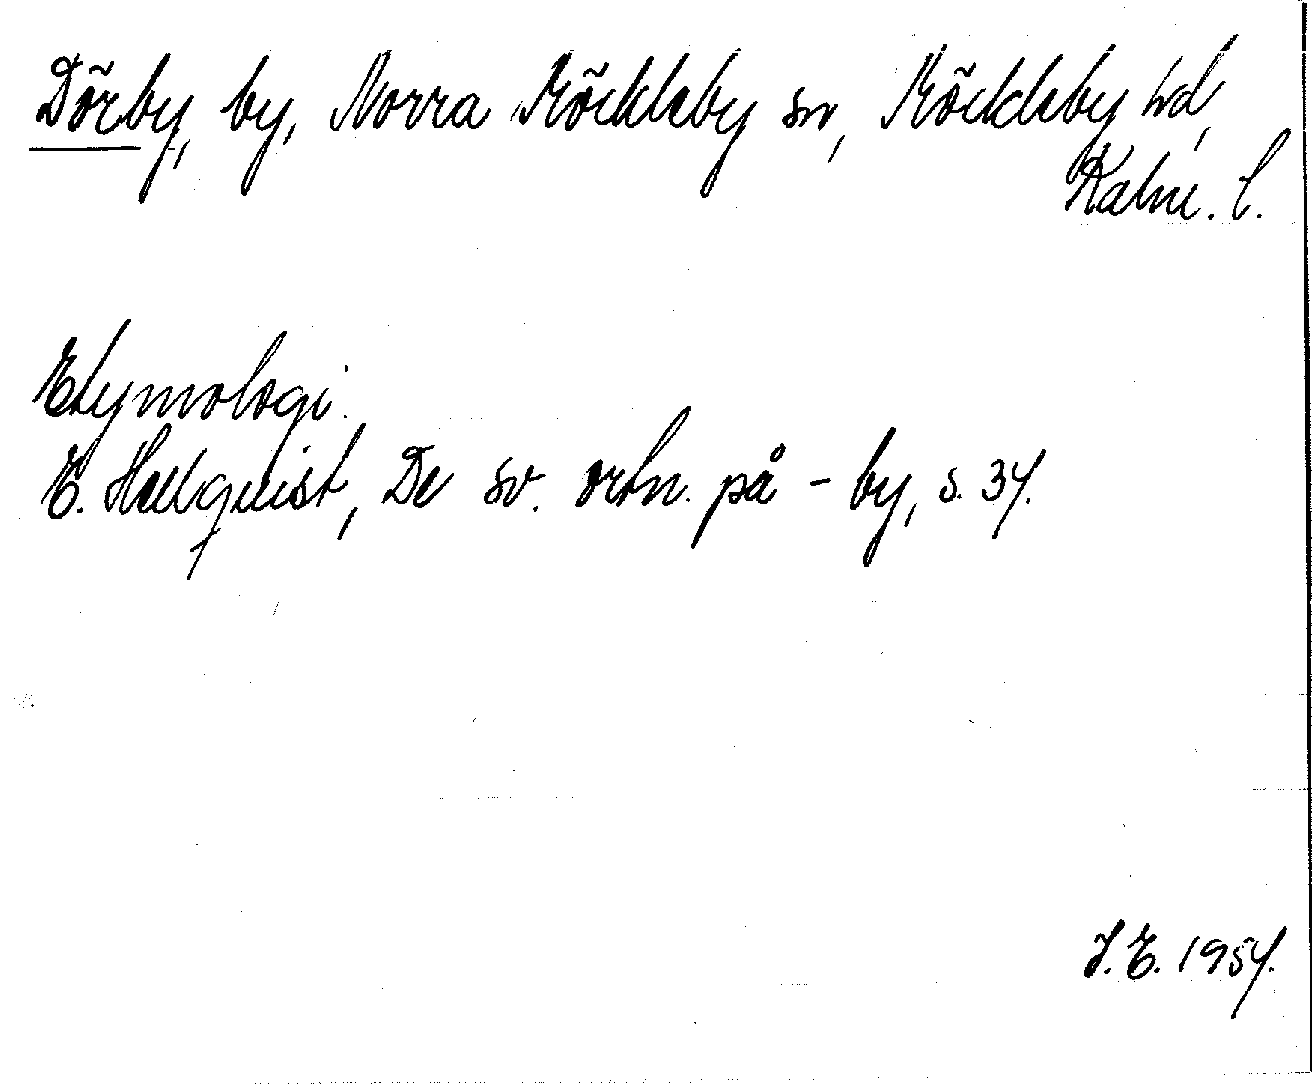 Dörby, by, Norra Möckleby sn, Möckleby hd,
Kalm. l.
Etymologi.
E. Hellquist, De sv. ortn. på -by, s. 34.
J.E. 1954.